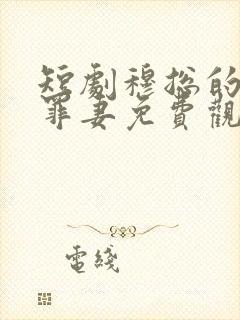 短劇穆総的
罪妻免費觀
電綫